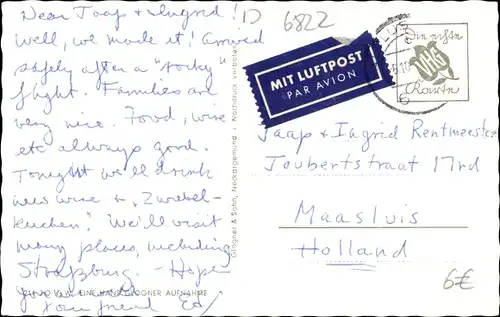 Dear Jaap & Ingrid!
Well, we made it! Arrived
safely after a "rocky
flight. Families are
very nice. Food, wine
etc always good.
Tonight we'll drink
new wine & "Zwiebel-
kuchen." We'll visit
many places, including
Straßburg. — Hope
your friend Ed
EINE HANS GLOGNER AUFNAHME
D 6822
MIT LUFTPOST
PAR AVION
Die echte
Karte
6
Glogner & Sohn, Neckargemünd · Nachdruck verboten
Jaap & Ingrid Rentmeester
Joubertstraat 17rd
Maasluis
Holland
6€